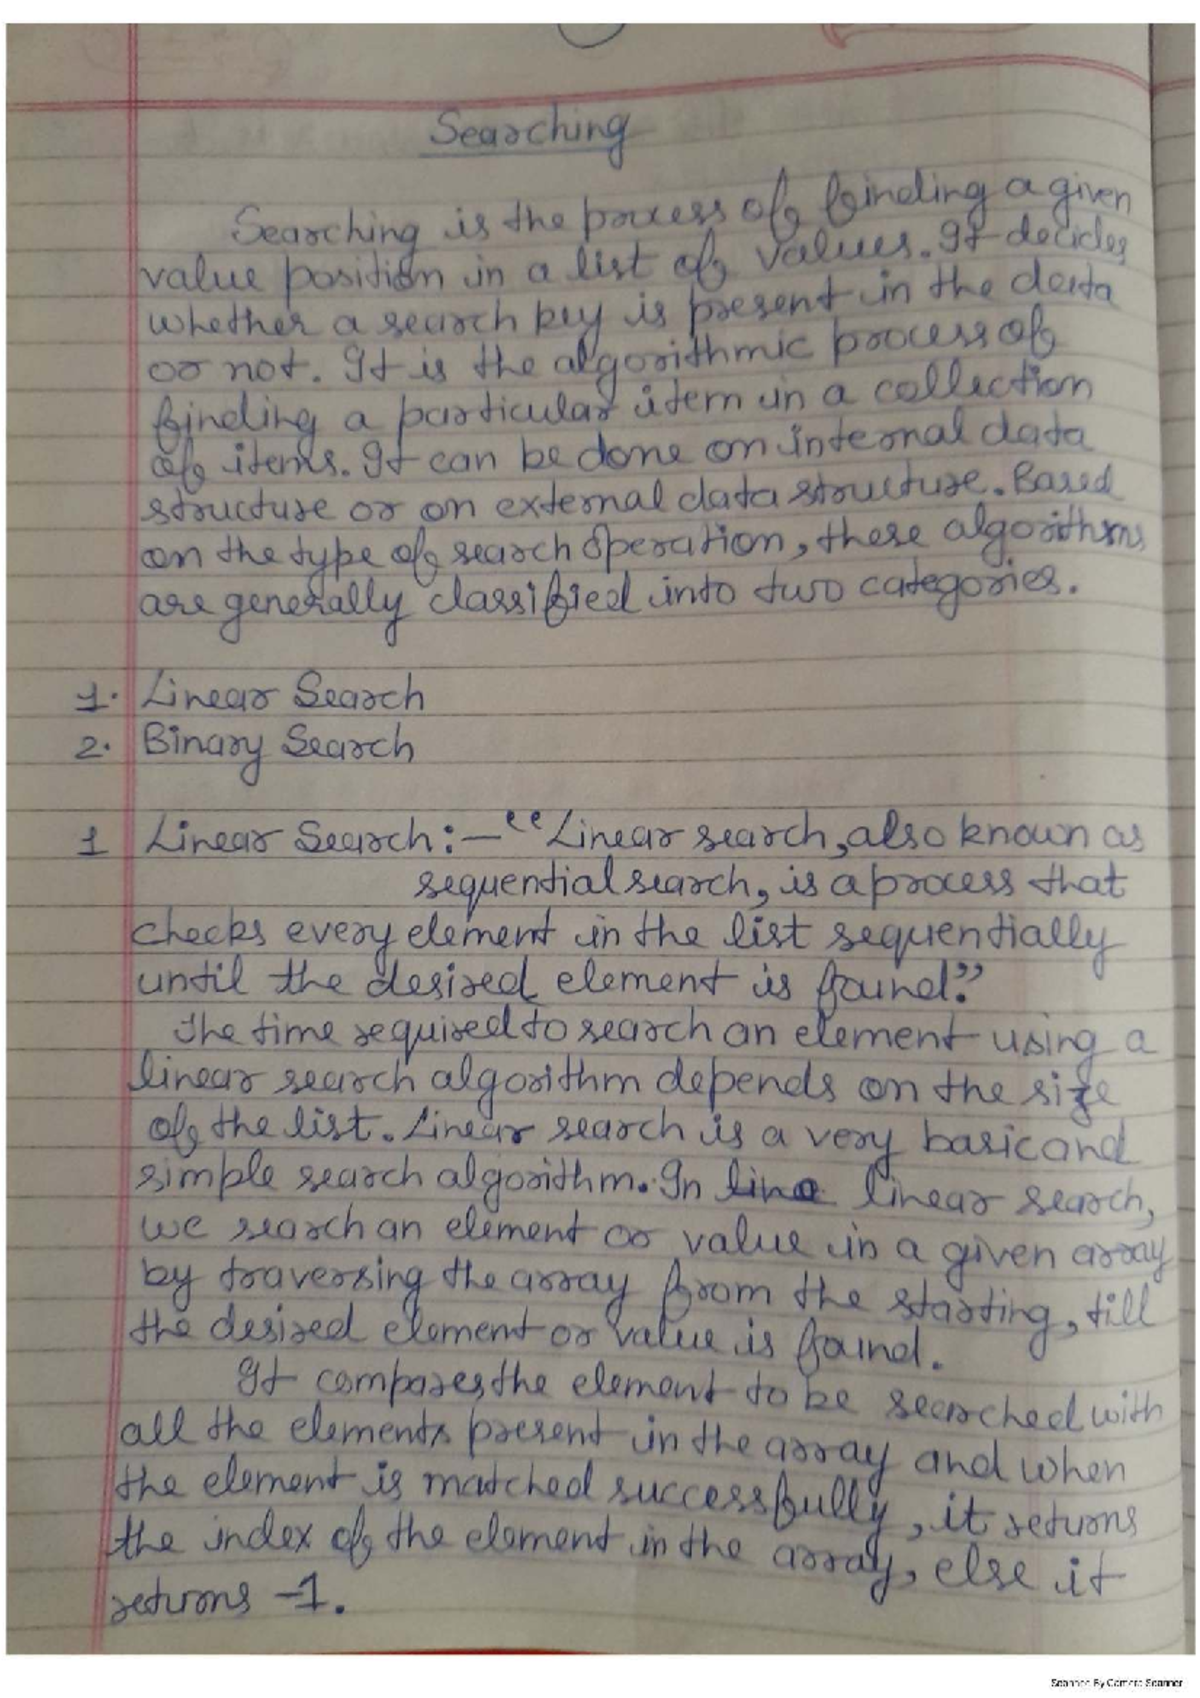 Searching
Searching is the process of finding a given
value position in a list of values. It decides
whether a search key is present in the data
or not. It is the algorithmic process of
finding a particular item in a collection
of items. It can be done on internal data
structure or on external data structure. Based
on the type of search operation, these algorithms
are generally classified into two categories.
1. Linear Search
2. Binary Search
1 Linear Search:- “Linear search, also known as
sequential search, is a process that
checks every element in the list sequentially
until the desired element is found.”
The time required to search an element using a
linear search algorithm depends on the size
of the list. Linear search is a very basic and
simple search algorithm. In linear search,
we search an element or value in a given array
by traversing the array from the starting, till
the desired element or value is found.
It compares the element to be searched with
all the elements present in the array and when
the element is matched successfully, it returns
the index of the element in the array, else it
returns -1.
Scanned By Camera Scanner